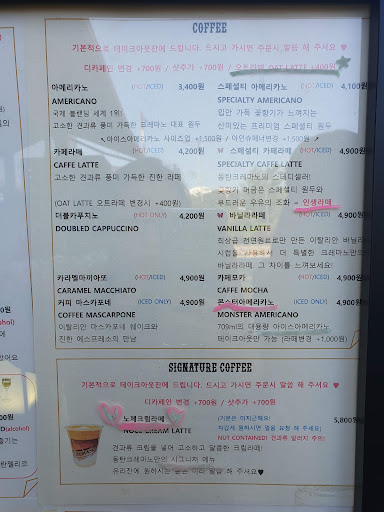 COFFEE
기본적으로 테이크아웃잔에 드립니다. 드시고 가시면 주문시 말씀 해 주세요 ♥
디카페인 변경 +700원 / 샷추가 +700원 / 오트라떼 OAT LATTE +400원
아메리카노 (HOT/ICED) 3,400원
AMERICANO
국제 블렌딩 세계 1위!
고소한 견과류 풍미 가득한 크레마노 대표 원두
↖아이스아메리카노 사이즈업 +1,500원
카페라떼 (HOT/ICED) 4,200원
CAFFE LATTE
고소한 견과류 풍미 가득한 진한 라떼
(OAT LATTE 오트라떼 변경시 +400원)
더블카푸치노 (HOT ONLY) 4,200원
DOUBLED CAPPUCCINO
카라멜마끼아또 (HOT/ICED) 4,900원
CARAMEL MACCHIATO
커피 마스카포네 (ICED ONLY) 4,900원
COFFEE MASCARPONE
이탈리안 마스카포네 쉐이크와
진한 에스프레소의 만남
스페셜티 아메리카노 (HOT/ICED) 4,100원
SPECIALTY AMERICANO
입안 가득 꽃향기가 느껴지는
산미있는 프리미엄 스페셜티 원두
스페셜티 카페라떼 (HOT/ICED) 4,900원
SPECIALTY CAFFE LATTE
동탄크레마노의 스테디셀러!
꽃향기 머금은 스페셜티 원두와
부드러운 우유의 조화 = 인생라떼
바닐라라떼 (HOT/ICED) 4,900원
VANILLA LATTE
최상급 천연원료로만 만든 이탈리안 바닐라
시럽을 사용해서 더 특별한 크레마노만의
바닐라라떼. 그 차이를 느껴보세요!
카페모카 (HOT/ICED) 4,900원
CAFFE MOCHA
몬스터아메리카노 (ICED ONLY) 4,900원
MONSTER AMERICANO
709ml의 대용량 아이스아메리카노
테이크아웃만 가능 (라떼변경 +1,000원)
SIGNATURE COFFEE
기본적으로 테이크아웃잔에 드립니다. 드시고 가시면 주문시 말씀 해 주세요 ♥
디카페인 변경 +700원 / 샷추가 +700원
노체크림라떼 5,800원
NOCE CREAM LATTE
(기본은 미지근해요!
차갑게 원하시면 얼음 요청 해 주세요)
NUT CONTAINED! 견과류 알러지 주의!
견과류 크림을 넣어 고소하고 달콤한 크림라떼!
동탄크레마노만의 시그니처 메뉴
유리잔에 원하시는 분은 미리 말씀 해 주세요♥